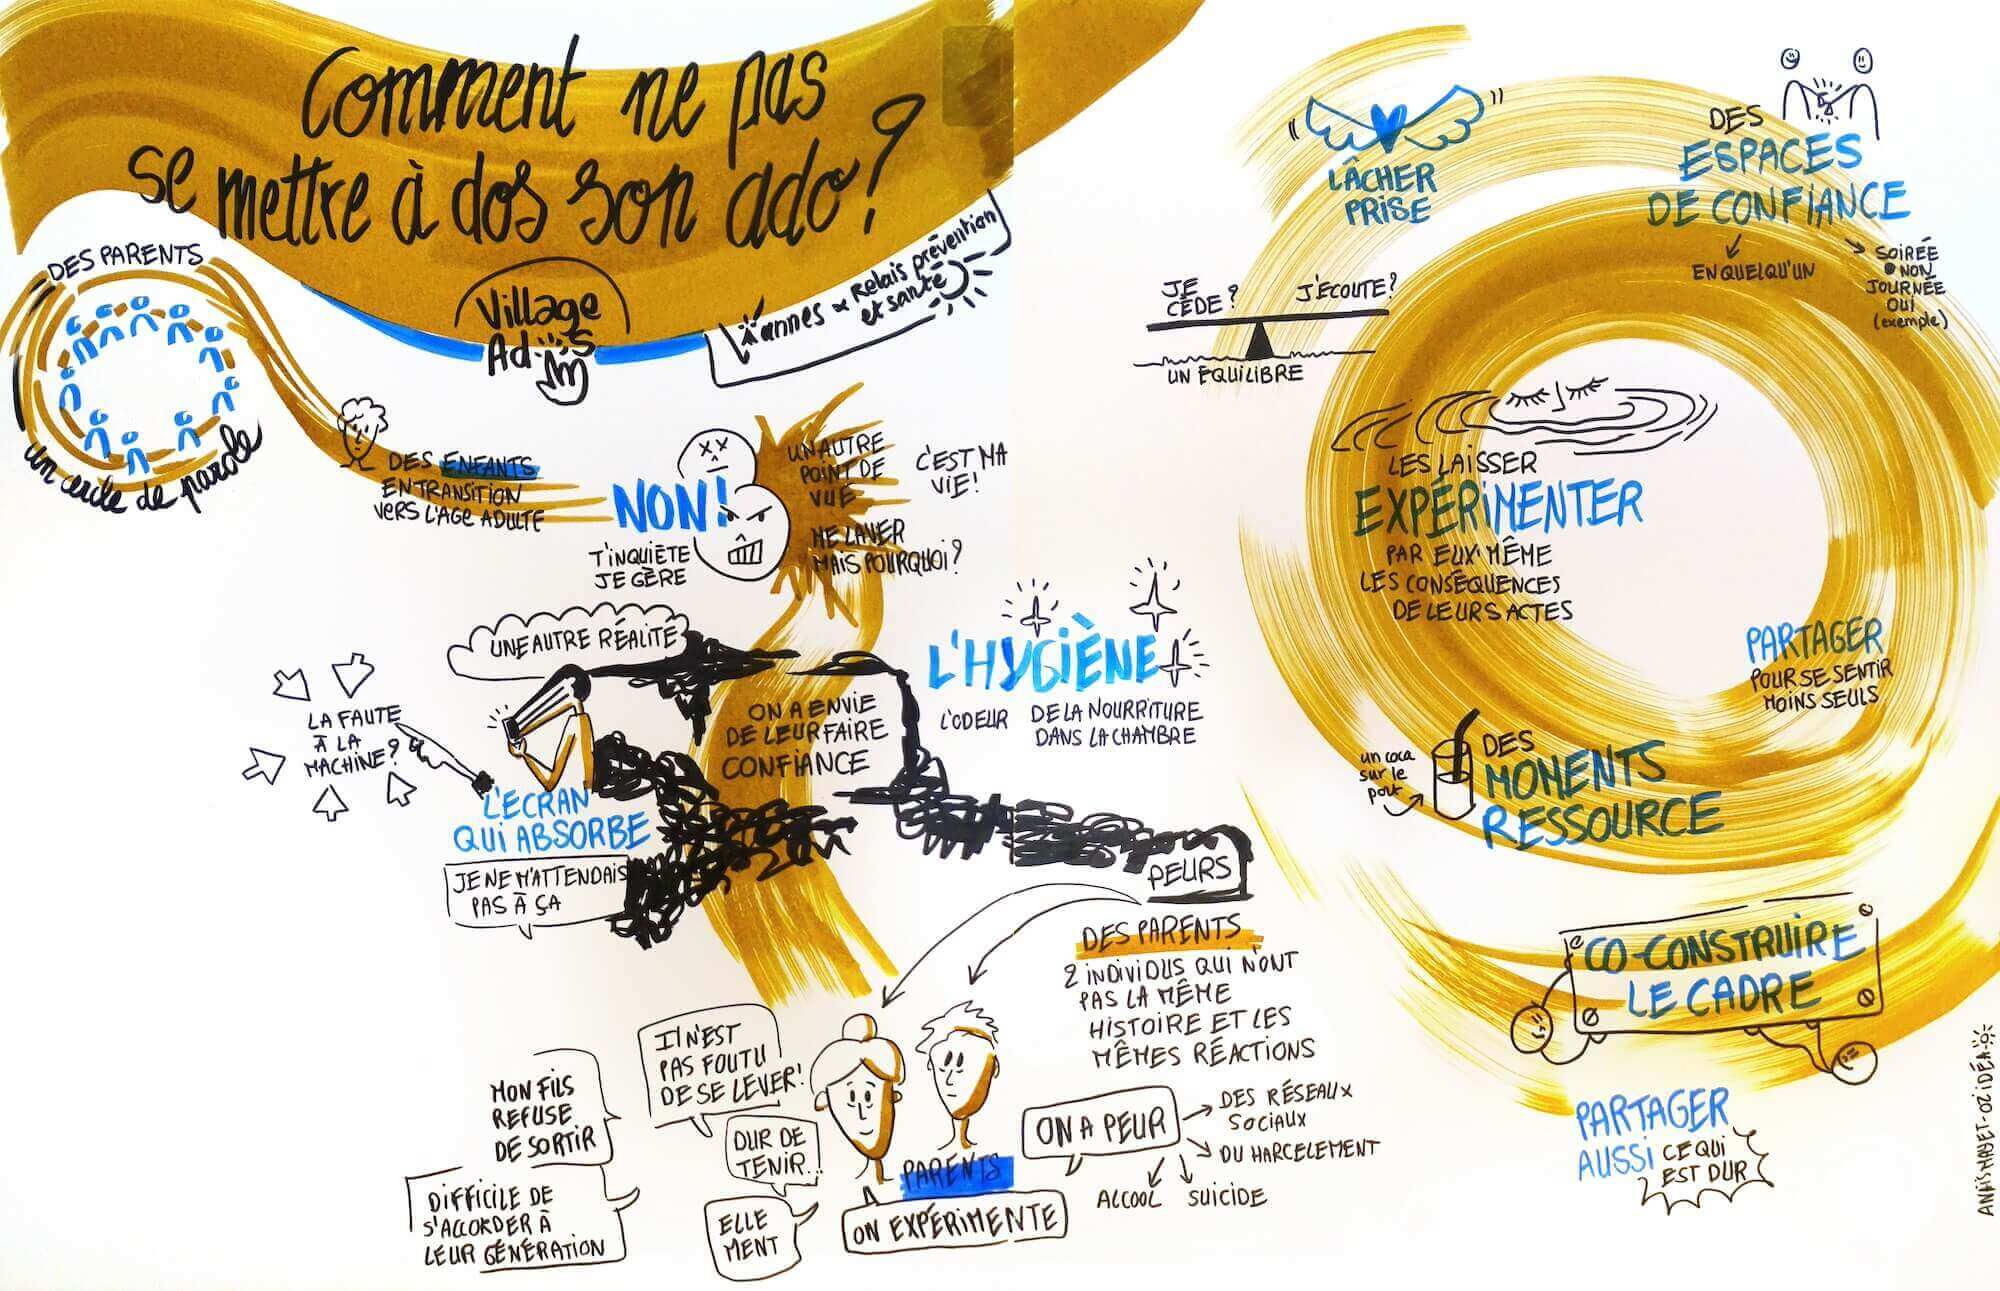 Comment ne pas
se mettre à dos son ado?
Village
Ados
Vannes
Relais prévention
et santé
DES PARENTS
un cercle de parole
DES ENFANTS
EN TRANSITION
VERS L'AGE ADULTE
NON!
T'INQUIÈTE
JE GÈRE
UN AUTRE
POINT DE
VUE
C'EST MA
VIE!
ME LAVER
MAIS POURQUOI?
UNE AUTRE RÉALITÉ
LA FAUTE
À LA
MACHINE?
L'ECRAN
QUI ABSORBE
JE NE M'ATTENDAIS
PAS À ÇA
ON A ENVIE
DE LEUR FAIRE
CONFIANCE
L'HYGIÈNE
L'ODEUR
DE LA NOURRITURE
DANS LA CHAMBRE
PEURS
DES PARENTS
2 INDIVIDUS QUI N'ONT
PAS LA MÊME
HISTOIRE ET LES
MÊMES RÉACTIONS
IL N'EST
PAS FOUTU
DE SE LEVER!
MON FILS
REFUSE
DE SORTIR
DUR DE
TENIR...
DIFFICILE DE
S'ACCORDER À
LEUR GÉNÉRATION
ELLE
MENT
PARENTS
ON EXPÉRIMENTE
ON A PEUR
DES RÉSEAUX
SOCIAUX
DU HARCELEMENT
SUICIDE
ALCOOL
LÂCHER
PRISE
DES
ESPACES
DE CONFIANCE
EN QUELQU'UN
SOIRÉE
NON
JOURNÉE
OUI
(exemple)
JE
CÈDE?
J'ÉCOUTE?
UN ÉQUILIBRE
LES LAISSER
EXPÉRIMENTER
PAR EUX MÊME
LES CONSÉQUENCES
DE LEURS ACTES
PARTAGER
POUR SE SENTIR
MOINS SEULS
un coca
sur le
port
DES
MOMENTS
RESSOURCE
CO-CONSTRUIRE
LE CADRE
PARTAGER
AUSSI CE QUI
EST DUR
ANAÏS MAYET - O2 IDÉA